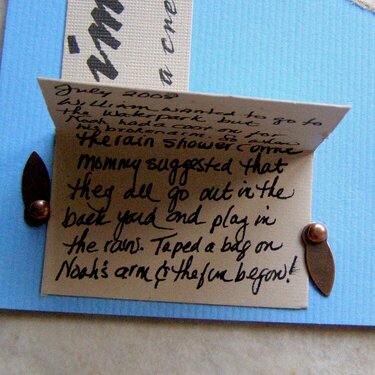 im
a cre
July 2008
William wanted to go to
the waterpark but
Noah had a cast on for
his broken arm. So when
the rain shower came
mommy suggested that
they all go out in the
back yard and play in
the rains. Taped a bag on
Noah's arm & the fun began!